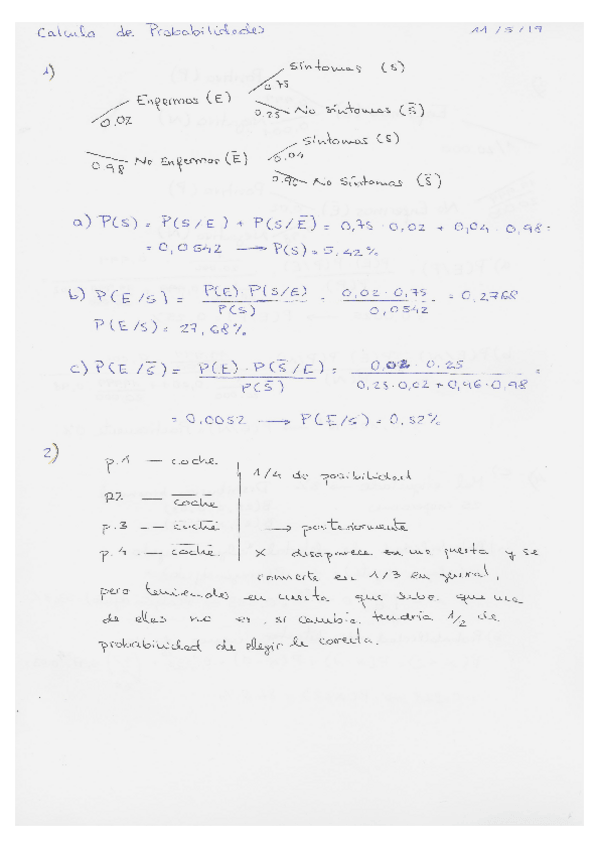 Calculo de Probabilidades 11/5/19
1)
Síntomas (S)
0.75
Enfermos (E)
0.02
0.25 No síntomas (S̄)
Síntomas (S)
0.04
0.98 No Enfermos (Ē)
0.96 No Síntomas (S̄)
a) P(S) = P(S/E) + P(S/Ē) = 0,75 · 0,02 + 0,04 · 0,98 =
= 0,0542 → P(S) = 5,42%
b) P(E/S) = P(E) · P(S/E) / P(S) = 0,02 · 0,75 / 0,0542 = 0,2768
P(E/S) = 27,68%
c) P(E/S̄) = P(E) · P(S̄/E) / P(S̄) = 0,02 · 0,25 / 0,25 · 0,02 + 0,96 · 0,98 =
= 0,0052 → P(E/S) = 0,52%
2)
p.1 — coche
1/4 de posibilidad
p2 — c̅o̅c̅h̅e̅
p.3 — c̅o̅c̅h̅e̅ → posteriormente
p.4 — c̅o̅c̅h̅e̅ x desaparece en una puerta y se
convierte en 1/3 en general,
pero teniendo en cuenta que sabe que una
de ellas no es, si cambia tendría 1/2 de
probabilidad de elegir la correcta.